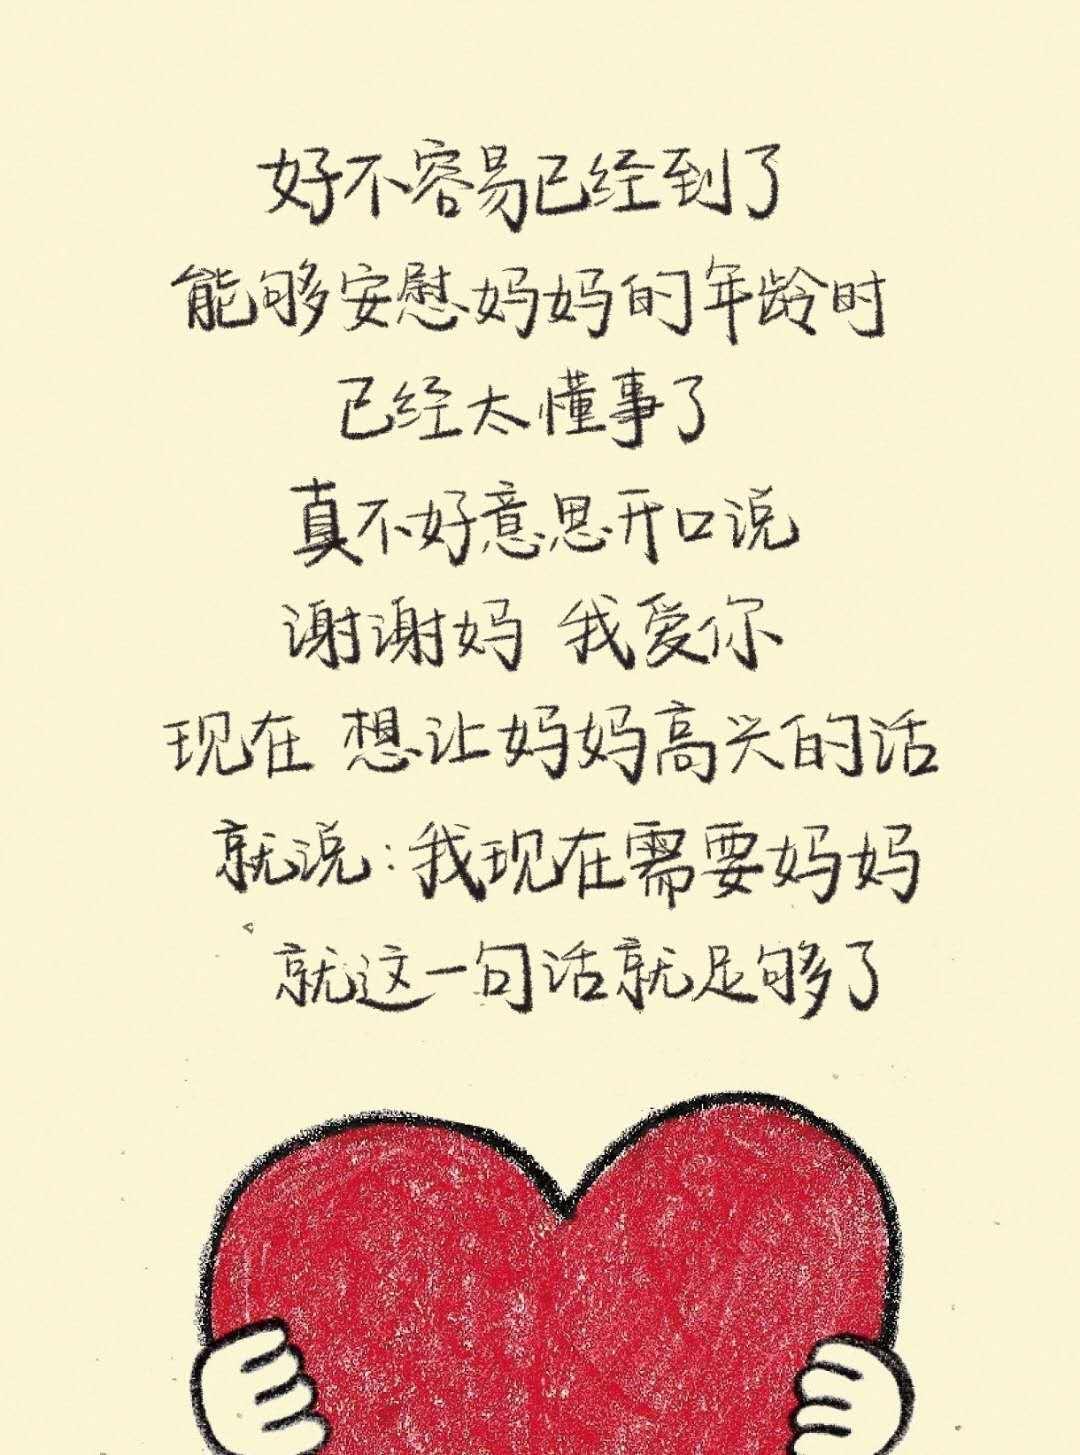 好不容易已经到了
能够安慰妈妈的年龄时
已经太懂事了
真不好意思开口说
谢谢妈 我爱你
现在 想让妈妈高兴的话
就说:我现在需要妈妈
就这一句话就足够了